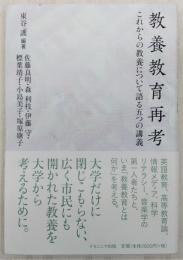 教養教育再考
これからの教養について語る五つの講義
東谷 護 編著
佐藤良明・森 利枝・伊藤 守・
標葉靖子・小島美子・塚原康子
英語教育、高等教育論、
情報メディア、科学
リテラシー、音楽学の
第一人者たちと、
いま「教養教育とは
何か」を考える。
大学だけに
閉じこもらない、
広く市民にも
開かれた教養を
大学から
考えるために。
ナカニシヤ出版